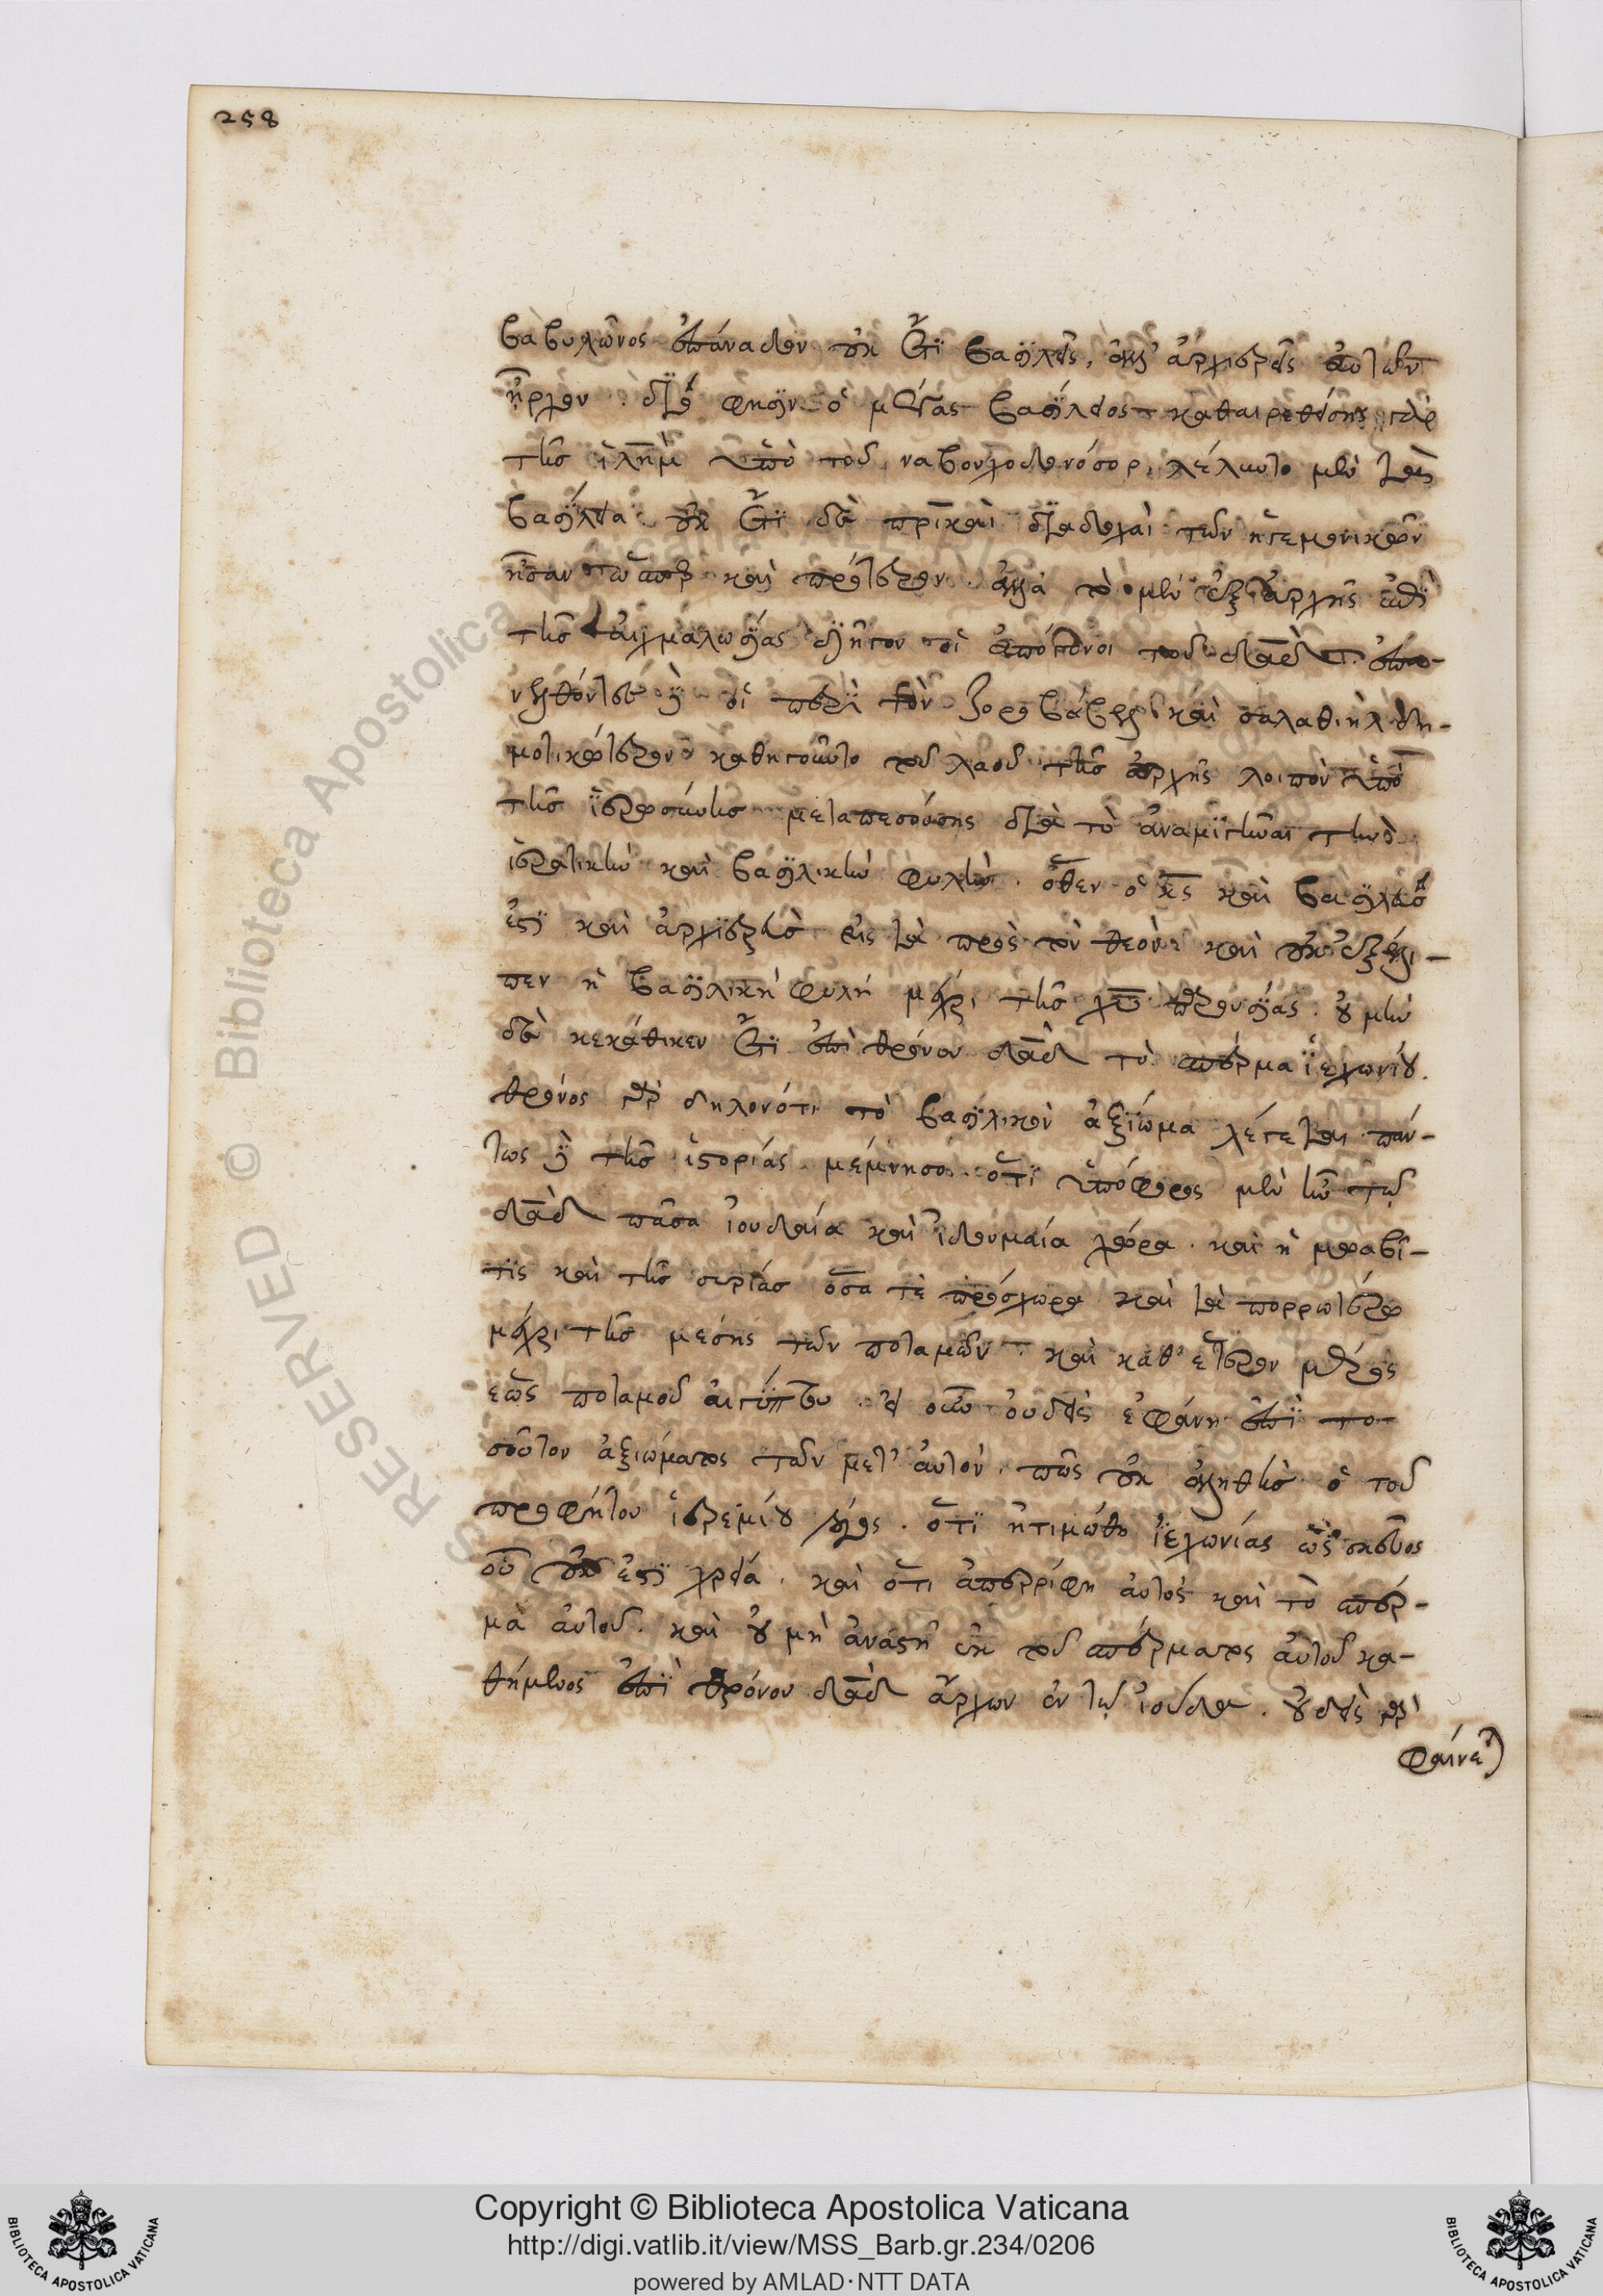 258
βαβυλῶνος ἐπάναδον οὐκ ἔτι βασιλεὺς, ἀλλ' ἀρχιερεὺς αὐτῶν
ἦρχεν. διὸ φησὶν ὁ μέγας βασίλειος καθαιρεθείσης γὰρ
τῆς ἱλημ ὑπὸ τοῦ ναβουχοδονόσορ, λέλυτο μὲν τὰ
βασίλεια οὐκ ἔτι δὲ πρικαὶ διαδοχαὶ τῶν ἡγεμονικῶν
ἦσαν ὥσπερ καὶ πρότερον. ἀλλὰ τὸ μὲν ἐξ ἀρχῆς ἐπὶ
τῆς αἰχμαλωσίας ἦγον οἱ ἀπόγονοι τοῦ δαδ. ἐπα-
νελθόντες δὲ οἱ περὶ τὸν ζοροβάβελ καὶ σαλαθιὴλ δη-
μοτικώτερον καθηγοῦντο τοῦ λαοῦ τῆς ἀρχῆς λοιπὸν ἐπὶ
τῆς ἱερωσύνης μεταπεσούσης διὰ τὸ ἀναμιγῆναι τὴν
ἱερατικὴν καὶ βασιλικὴν φυλὴν. ὅθεν ὁ κς καὶ βασιλεύς
ἐστι καὶ ἀρχιερεὺς εἰς τὰ πρὸς τὸν θεόν καὶ οὐκ ἐξέλι-
πεν ἡ βασιλικὴ φυλὴ μέχρι τῆς χυ παρουσίας. οὐ μὴν
δὲ κεκάθικεν ἔτι ἐπὶ θρόνου δαδ τὸ σπέρμα ἰεχωνίου.
θρόνος γὰρ δηλονότι τὸ βασιλικὸν ἀξίωμα λέγεται πάν-
τως δὲ τῆς ἱστορίας μέμνησο. ὅτι ὑπόφορος μὲν ἦν τῷ
δαδ πᾶσα ἰουδαία καὶ ἰδουμαία χώρα. καὶ ἡ μωαβῖ-
τις καὶ τῆς συρίας ὅσα τὲ πρόσχωρα καὶ τὰ πορρωτέρω
μέχρι τῆς μέσης τῶν ποταμῶν. καὶ καθ' ἕτερον μέρος
ἕως ποταμοῦ αἰγύπτου. εἰ οὖν οὐδεὶς ἐφάνη ἐπὶ το-
σοῦτον ἀξιώματος τῶν μετ' αὐτόν. πῶς οὐκ ἀληθὴς ὁ τοῦ
προφήτου ἱερεμίου λόγος. ὅτι ἠτιμώθη ἰεχωνίας ὡς σκεῦος
οὗ οὐκ ἔστι χρεία. καὶ ὅτι ἀπερρίφη αὐτὸς καὶ τὸ σπέρ-
μα αὐτοῦ. καὶ οὐ μὴ ἀναστῇ ἐκ τοῦ σπέρματος αὐτοῦ κα-
θήμενος ἐπὶ θρόνου δαδ ἄρχων ἐν τῷ ἰούδα. οὐδεὶς γὰρ
φαίνεται
RESERVED © Biblioteca Apostolica Vaticana
Copyright © Biblioteca Apostolica Vaticana
http://digi.vatlib.it/view/MSS_Barb.gr.234/0206
powered by AMLAD·NTT DATA
BIBLIOTECA APOSTOLICA VATICANA
BIBLIOTECA APOSTOLICA VATICANA